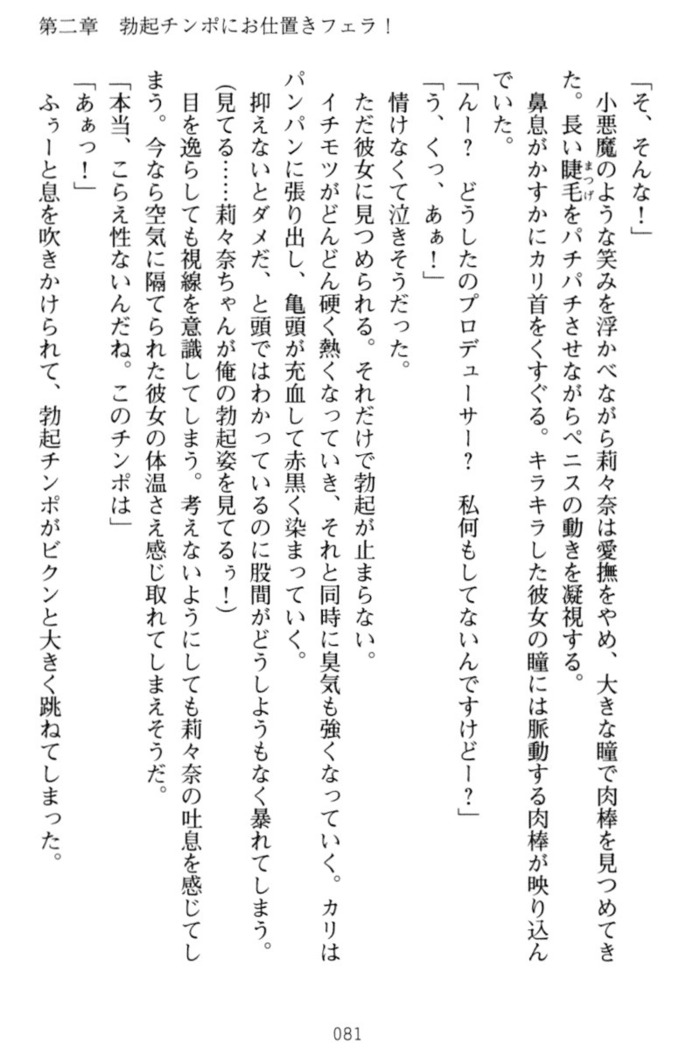 第二章　勃起チンポにお仕置きフェラ！
「そ、そんな！」
　小悪魔のような笑みを浮かべながら莉々奈は愛撫をやめ、大きな瞳で肉棒を見つめてき
た。長い睫毛をパチパチさせながらペニスの動きを凝視する。
　鼻息がかすかにカリ首をくすぐる。キラキラした彼女の瞳には脈動する肉棒が映り込ん
でいた。
「んー？　どうしたのプロデューサー？　私何もしてないんですけどー？」
「う、くっ、あぁ！」
　情けなくて泣きそうだった。
　ただ彼女に見つめられる。それだけで勃起が止まらない。
　イチモツがどんどん硬く熱くなっていき、それと同時に臭気も強くなっていく。カリは
パンパンに張り出し、亀頭が充血して赤黒く染まっていく。
　抑えないとダメだ、と頭ではわかっているのに股間がどうしようもなく暴れてしまう。
（見てる……莉々奈ちゃんが俺の勃起姿を見てるぅ！）
　目を逸らしても視線を意識してしまう。考えないようにしても莉々奈の吐息を感じてし
まう。今なら空気に隔てられた彼女の体温さえ感じ取れてしまえそうだ。
「本当、こらえ性ないんだね。このチンポは」
「あぁっ！」
　ふぅーと息を吹きかけられて、勃起チンポがビクンと大きく跳ねてしまった。
まつげ
081